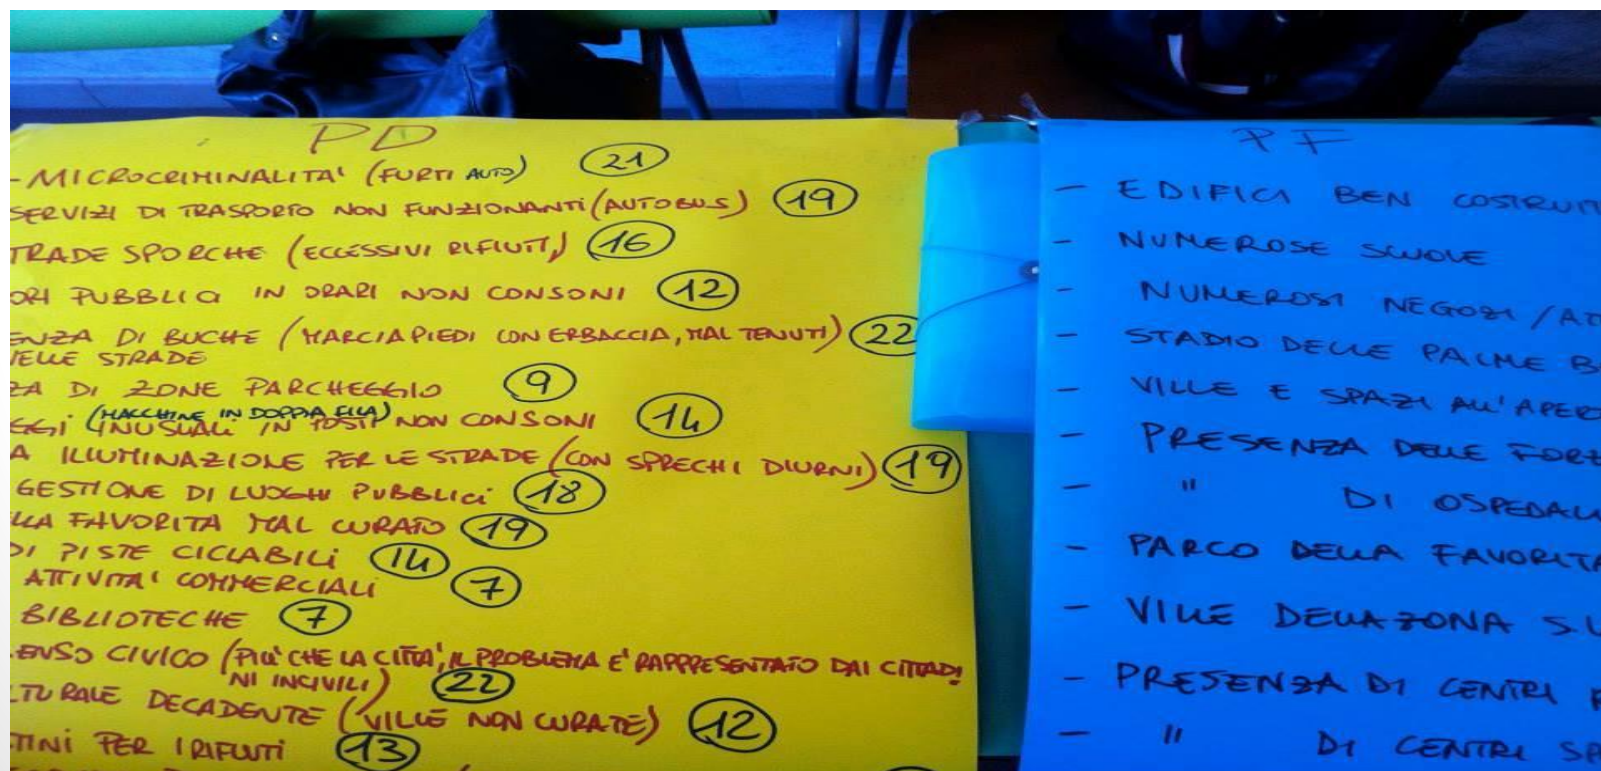 PD
- MICROCRIMINALITA' (FURTI AUTO) 21
SERVIZI DI TRASPORTO NON FUNZIONANTI (AUTOBUS) 19
TRADE SPORCHE (ECCESSIVI RIFIUTI) 16
ORI PUBBLICI IN ORARI NON CONSONI 12
ENZA DI BUCHE (MARCIAPIEDI CON ERBACCIA, MAL TENUTI) 22
NELLE STRADE
ZA DI ZONE PARCHEGGIO 9
(MACCHINE IN DOPPIA FILA)
GGI (INUSUALI IN POSTI NON CONSONI 14
A ILLUMINAZIONE PER LE STRADE (CON SPRECHI DIURNI) 19
GESTIONE DI LUOGHI PUBBLICI 18
LLA FAVORITA MAL CURATO 19
DI PISTE CICLABILI 14
ATTIVITA' COMMERCIALI 7
BIBLIOTECHE 7
ENSO CIVICO (PIU' CHE LA CITTA', IL PROBLEMA E' RAPPRESENTATO DAI CITTADI
NI INCIVILI) 22
LTURALE DECADENTE (VILLE NON CURATE) 12
TINI PER I RIFIUTI 13
PF
- EDIFICI BEN COSTRUIT
- NUMEROSE SCUOLE
- NUMEROSI NEGOZI / AT
- STADIO DELLE PALME B
- VILLE E SPAZI ALL'APER
- PRESENZA DELLE FORZ
- " DI OSPEDALI
- PARCO DELLA FAVORITA
- VILLE DELLA ZONA S.L
- PRESENZA DI CENTRI
- " DI CENTRI SP